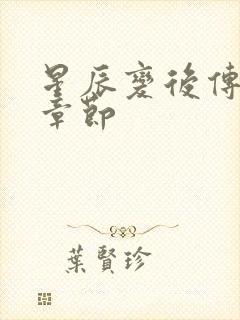 星辰变後傳
章節
葉賢珍